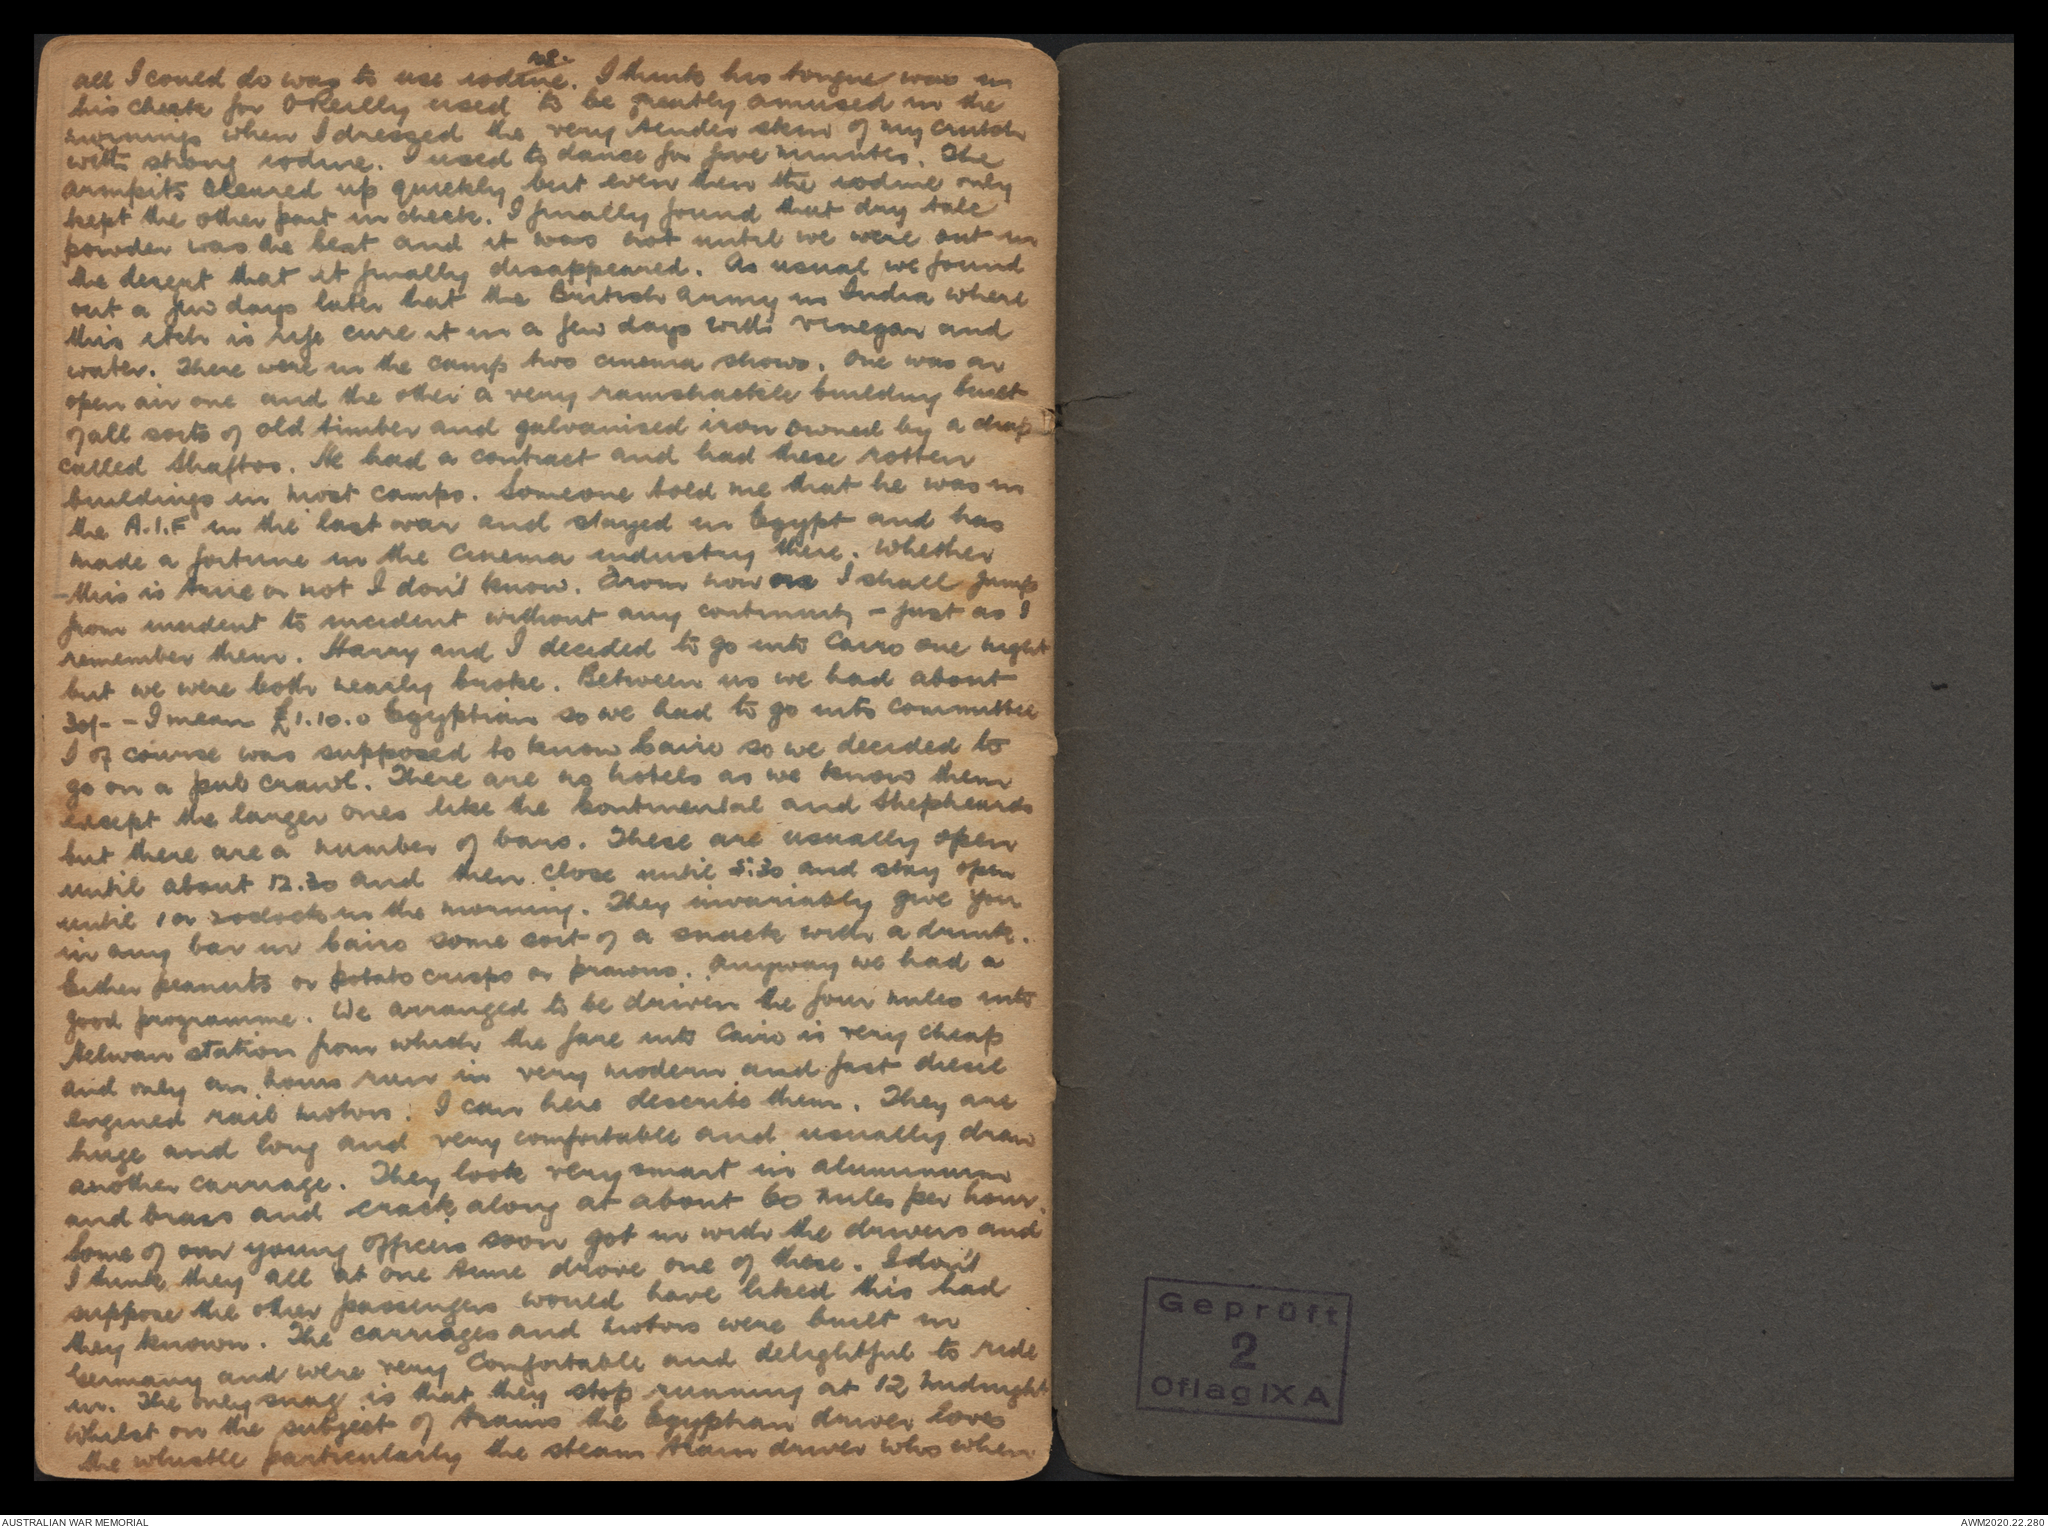 108.
all I could do was to use iodine. I think his tongue was in
his cheek for O'Reilly used to be greatly amused in the
mornings when I dressed the very tender skin of my crutch
with strong iodine. I used to dance for five minutes. The
armpits cleared up quickly but even then the iodine only
kept the other part in check. I finally found that dry talc
powder was the best and it was not until we were out in
the desert that it finally disappeared. As usual we found
out a few days later that the British Army in India where
this itch is rife cure it in a few days with vinegar and
water. There were in the camp two cinema shows. One was an
open air one and the other a very ramshackle building built
of all sorts of old timber and galvanised iron owned by a chap
called Shaftos. He had a contract and had these rotten
buildings in most camps. Someone told me that he was in
the A.I.F in the last war and stayed in Egypt and has
made a fortune in the cinema industry there. Whether
this is true or not I don't know. From now on I shall jump
from incident to incident without any continuity - just as I
remember them. Harry and I decided to go into Cairo one night
but we were both nearly broke. Between us we had about
30/- - I mean £1.10.0 Egyptian so we had to go into committee
I of course was supposed to know Cairo so we decided to
go on a pub crawl. There are no hotels as we know them
except the larger ones like the Continental and Shepheards
but there are a number of bars. These are usually open
until about 12.30 and then close until 5.30 and stay open
until 1 or 2 oclock in the morning. They invariably give you
in any bar in Cairo some sort of a snack with a drink.
Either peanuts or potato crisps or prawns. Anyway we had a
good programme. We arranged to be driven the four miles into
Helwan station from which the fare into Cairo is very cheap
and only an hours run in very modern and fast diesel
engined rail motors. I can here describe them. They are
huge and long and very comfortable and usually draw
another carriage. They look very smart in aluminium
and brass and crack along at about 60 miles per hour.
Some of our young officers soon got in with the drivers and
I think they all at one time drove one of these. I don't
suppose the other passengers would have liked this had
they known. The carriages and motors were built in
Germany and were very comfortable and delightful to ride
in. The only snag is that they stop running at 12 midnight
Whilst on the subject of trains the Egyptian driver loves
the whistle particularly the steam train driver who when
Geprüft
2
Oflag IX A
AUSTRALIAN WAR MEMORIAL
AWM2020.22.280